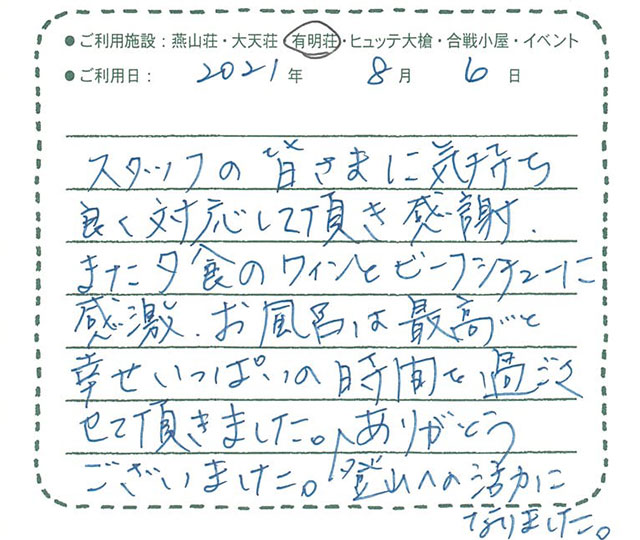 ●ご利用施設：燕山荘・大天荘・有明荘・ヒュッテ大槍・合戦小屋・イベント
●ご利用日： 2021 年 8 月 6 日
スタッフの皆さまに気持ち
良く対応して頂き感謝．
また夕食のワインとビーフシチューに
感激．お風呂は最高…と
幸せいっぱいの時間を過ごさ
せて頂きました。ありがとう
ございました。登山への活力に
なりました。